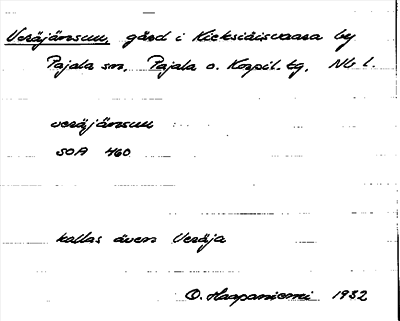 Veräjänsuu, gård i Kieksiäisvaara by
Pajala sn, Pajala o. Korpil. tg, Nb l.
veräjänsuu
SOA 460
kallas även Veräjä
O. Haapaniemi 1932